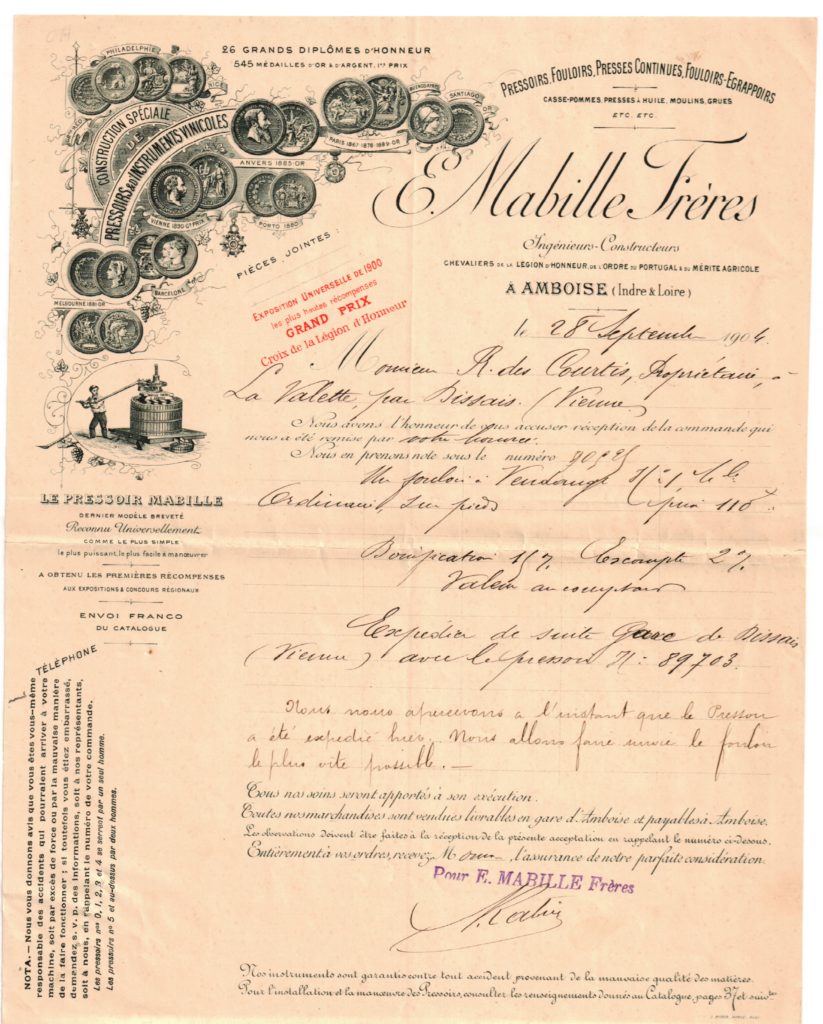 26 GRANDS DIPLÔMES D'HONNEUR
545 MÉDAILLES D'OR & D'ARGENT. 1ers PRIX
PHILADELPHIE
NICE
CONSTRUCTION SPÉCIALE
DE
PRESSOIRS & D'INSTRUMENTS VINICOLES
ANVERS 1885·OR
PARIS 1867·1878·1889·OR
BUENOS-AYRES
SANTIAGO OR
VIENNE 1890·Gd PRIX
PORTO 1880
BARCELONE
MELBOURNE 1881·OR
PRESSOIRS, FOULOIRS, PRESSES CONTINUES, FOULOIRS-EGRAPPOIRS
CASSE-POMMES, PRESSES À HUILE, MOULINS, GRUES
ETC. ETC.
E. Mabille Frères
Ingénieurs-Constructeurs
CHEVALIERS DE LA LÉGION D'HONNEUR, DE L'ORDRE DU PORTUGAL & DU MÉRITE AGRICOLE
À AMBOISE (Indre & Loire)
PIÈCES JOINTES:
EXPOSITION UNIVERSELLE DE 1900
les plus hautes récompenses
GRAND PRIX
Croix de la Légion d'Honneur
le 28 Septembre 1904
Monsieur R. des Courtis, Propriétaire,
La Valette, par Bissais. (Vienne)
Nous avons l'honneur de vous accuser réception de la commande qui
nous a été remise par
Nous en prenons note sous le numéro
Un fouloir à Vendange N° 1
Ordinaire, sur pieds prix 110f
Bonification 15% Escompte 2%
Valeur au comptant
Expédier de suite Gare de Bissais
(Vienne) avec le pressoir N: 89703.
Nous nous apercevons a l'instant que le Pressoir
a été expedié hier. Nous allons faire suivre le fouloir
le plus vite possible. —
Tous nos soins seront apportés à son exécution.
Toutes nos marchandises sont vendues livrables en gare d'Amboise et payables à Amboise.
Les observations doivent être faites à la réception de la présente acceptation en rappelant le numéro ci-dessus.
Entièrement à vos ordres, recevez M l'assurance de notre parfaite considération.
Pour E. MABILLE Frères
LE PRESSOIR MABILLE
DERNIER MODÈLE BREVETÉ
Reconnu Universellement
COMME LE PLUS SIMPLE
le plus puissant, le plus facile à manœuvrer
A OBTENU LES PREMIÈRES RÉCOMPENSES
AUX EXPOSITIONS & CONCOURS RÉGIONAUX
ENVOI FRANCO
DU CATALOGUE
TÉLÉPHONE
NOTA. — Nous vous donnons avis que vous êtes vous-même
responsable des accidents qui pourraient arriver à votre
machine, soit par excès de force ou par la mauvaise manière
de la faire fonctionner; si toutefois vous étiez embarrassé,
demandez s. v. p. des informations, soit à nos représentants,
soit à nous, en rappelant le numéro de votre commande.
Les pressoirs nos 0, 1, 2, 3 et 4 se serrent par un seul homme.
Les pressoirs n° 5 et au-dessus par deux hommes.
Nos instruments sont garantis contre tout accident provenant de la mauvaise qualité des matières.
Pour l'installation et la manœuvre des Pressoirs, consulter les renseignements donnés au Catalogue, pages 37 et suivtes